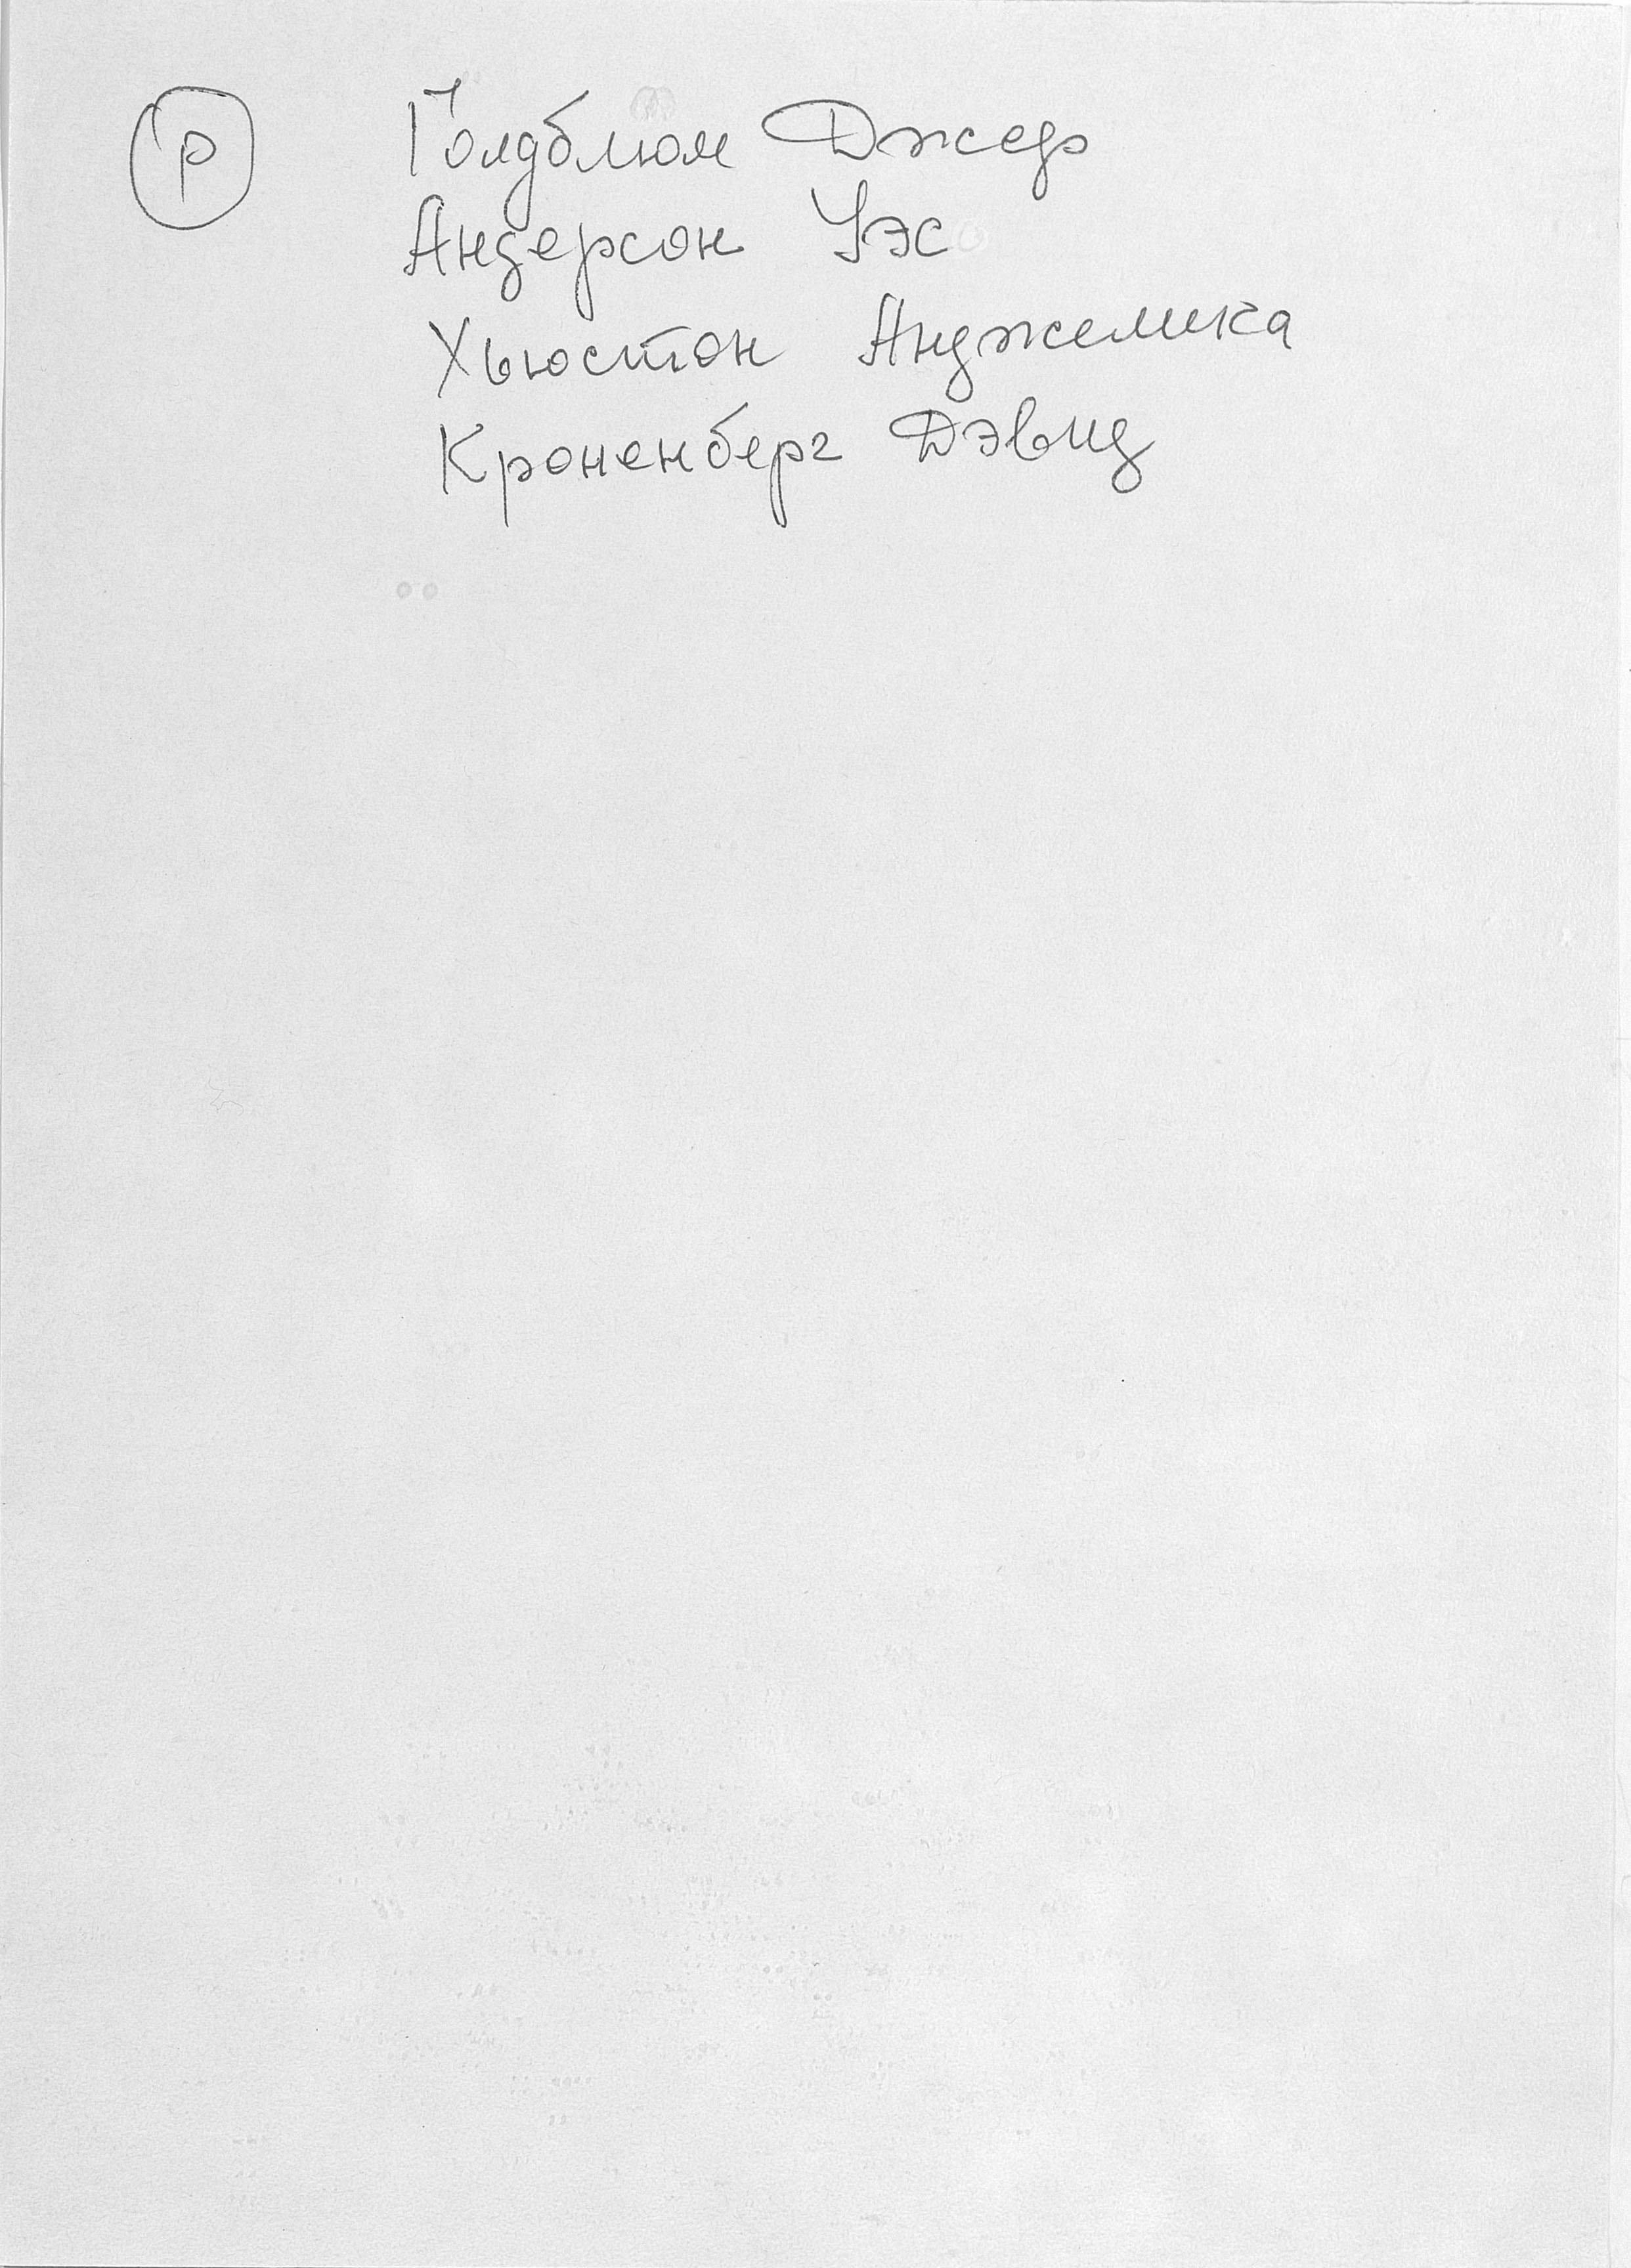 Р Голдблюм Джеф
Андерсон Уэс
Хьюстон Анджелика
Кроненберг Дэвид